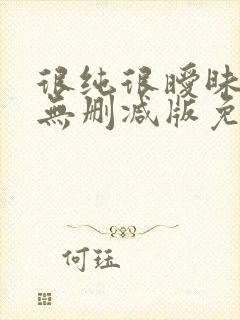 很纯很暧昧
無删减版免
何珏